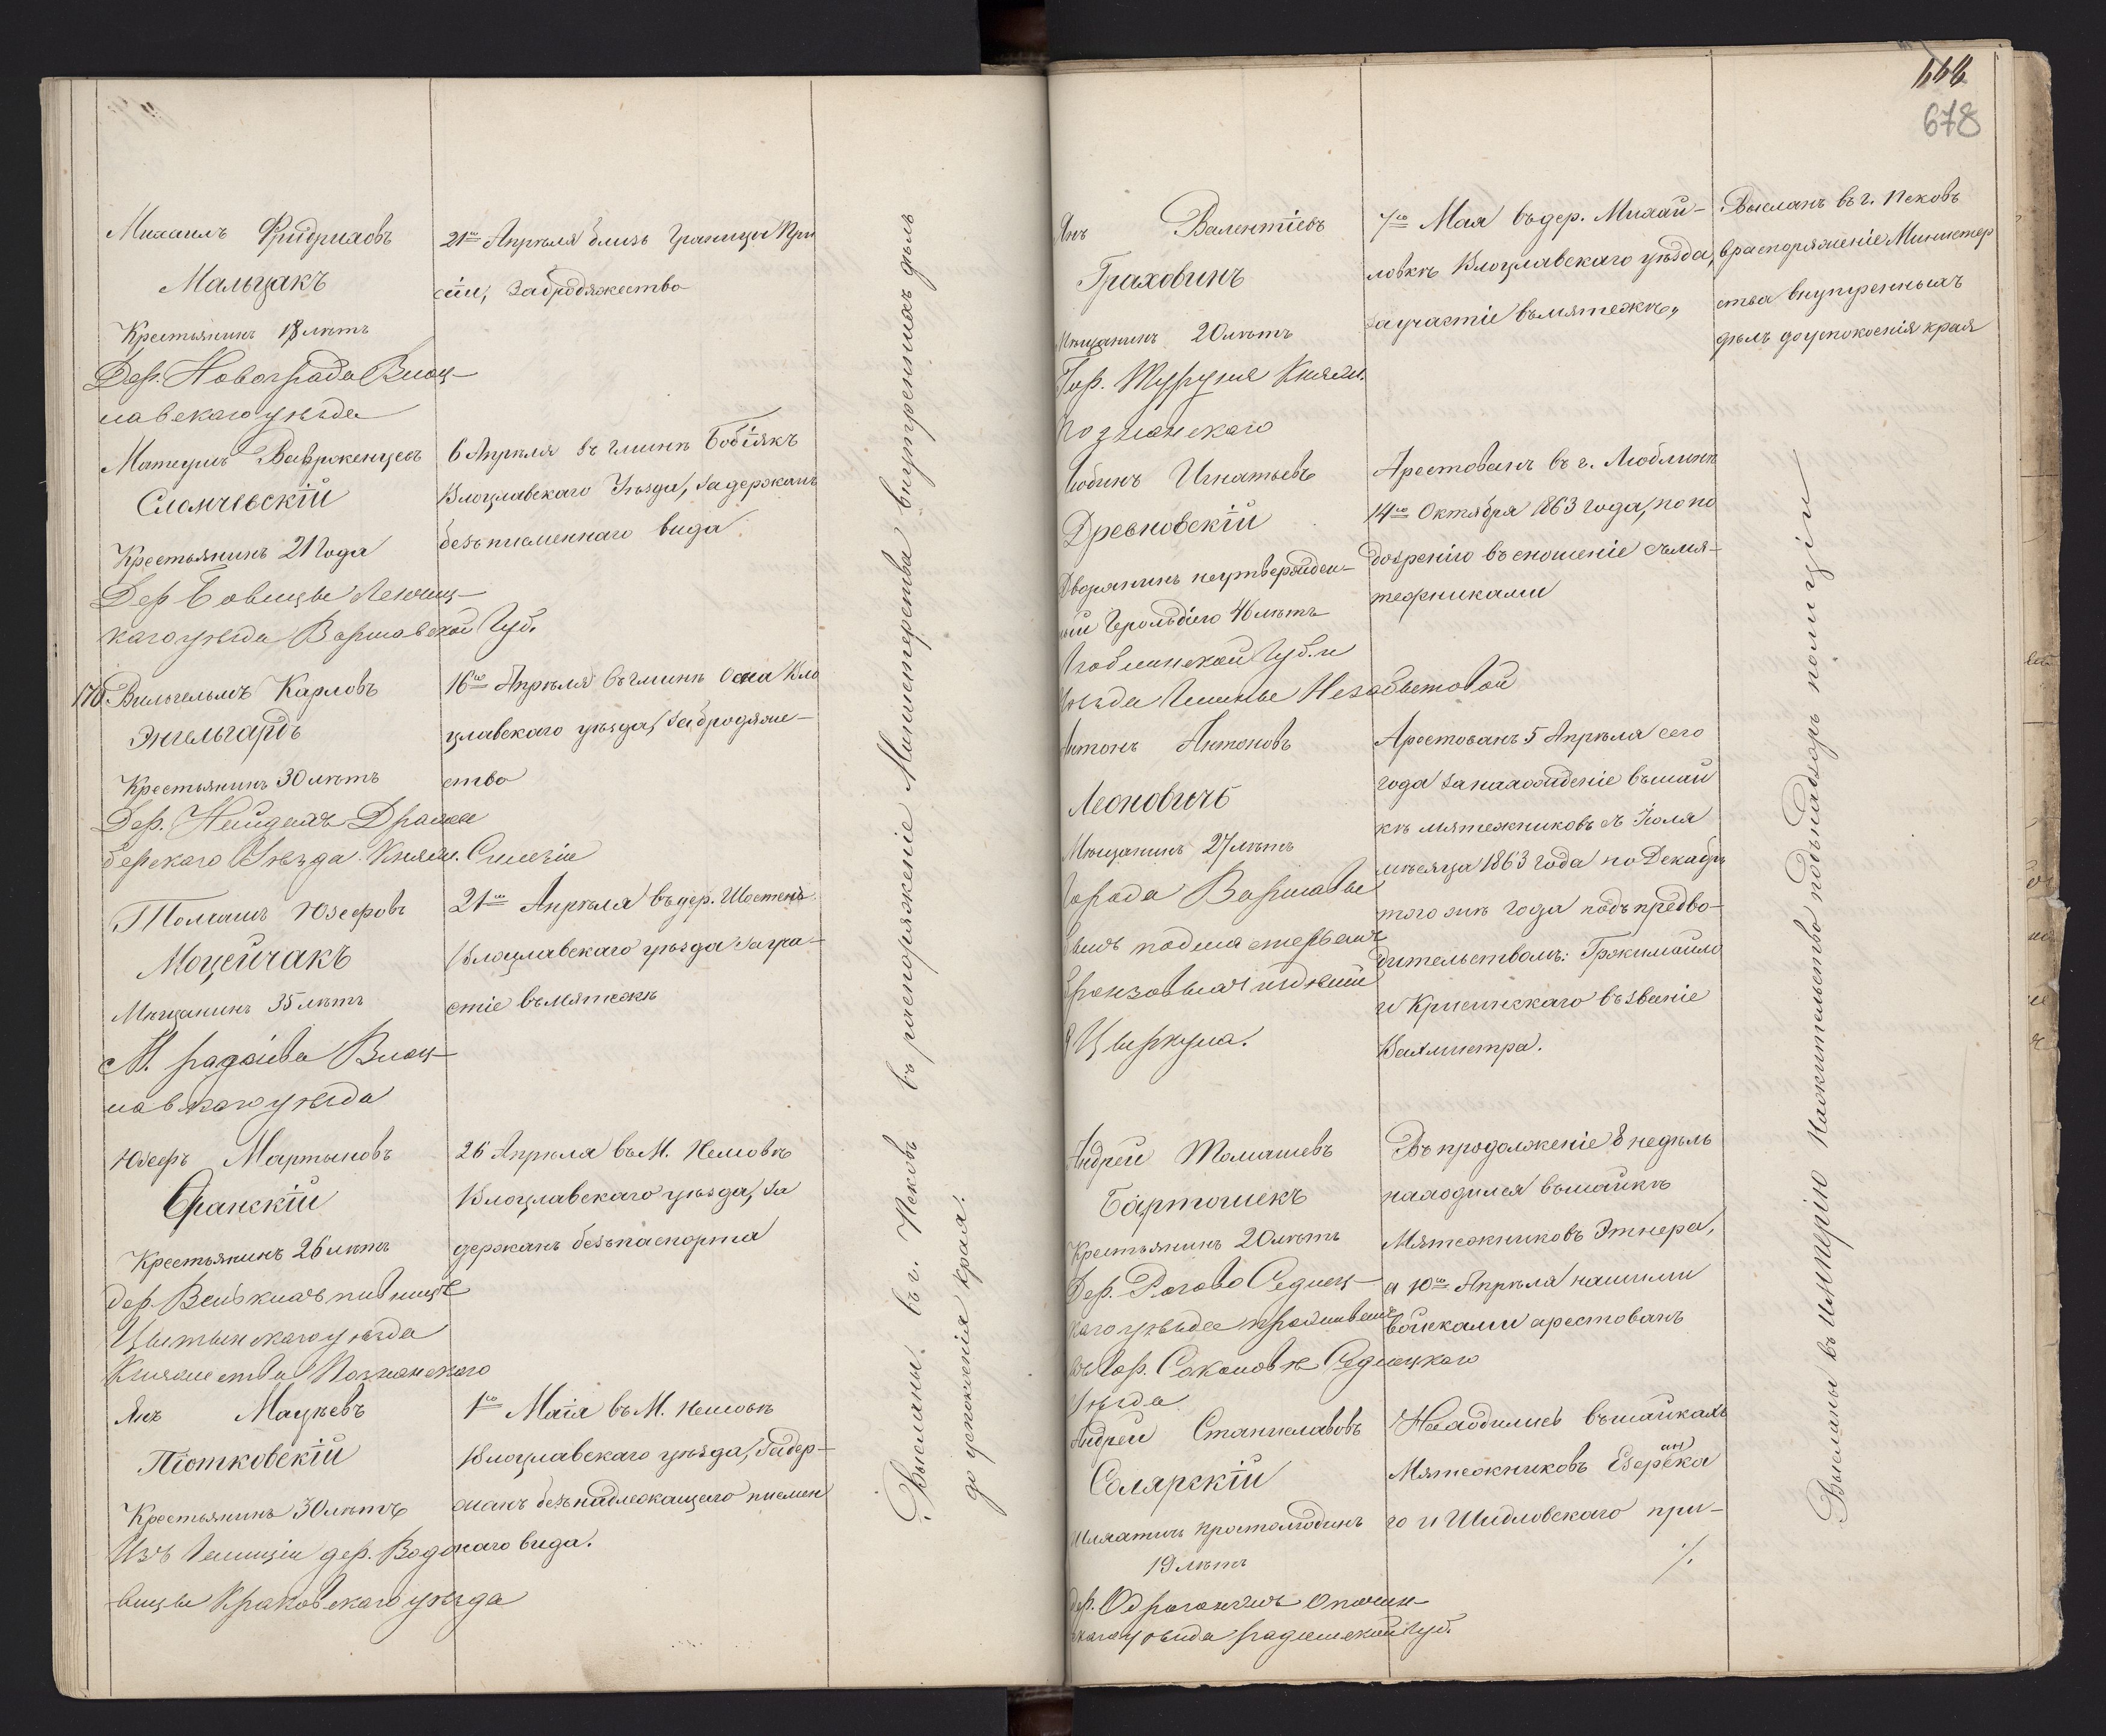 Михаилъ Фридриховъ
Мальцакъ
Крестьянинъ 18 лѣтъ
Дер. Новограда Влоц-
лавскаго уѣзда
21го Апрѣля близь границы Прус
сіи, за бродяжество
Матеушъ Вавржинцевъ
Сломчевскій
Крестьянинъ 21 года
Дер Ленчиц-
каго уѣзда Варшавской Губ.
6 Апрѣля въ гминѣ Бобіякъ
Влоцлавскаго Уѣзда, задержанъ
безъ письменнаго вида
170 Вильгельмъ Карловъ
Энгельгардъ
Крестьянинъ 30 лѣтъ
Дер. Нейдехъ
берскаго Уѣзда Княж. Силезіи
16го Апрѣля въ гминѣ Осна Вло
цлавскаго уѣзда, за бродяже-
ство
Томашъ Юзефовъ
Моцейчакъ
Мѣщанинъ 35 лѣтъ
М. Радзіева Влоц-
лавскаго уѣзда
21го Апрѣля въ дер. Шостень
Влоцлавскаго уѣзда за уча-
стіе въ мятежѣ
Юзефъ Мартыновъ
Сранскій
Крестьянинъ 26 лѣтъ
дер.
уѣзда
Княжества Познанскаго
26 Апрѣля въ М. Нешовѣ
Влоцлавскаго уѣзда, за
держанъ безъ паспорта
Янъ Мацѣевъ
Піотковскій
Крестьянинъ 30 лѣтъ
Изъ Галиціи дер. Водо
вицы Краковскаго уѣзда
1го Маія въ М. Нешовѣ
Влоцлавскаго уѣзда, задер-
жанъ безъ надлежащаго письмен
наго вида.
Высланы въ г. Псковъ въ распоряженіе Министерства внутреннихъ дѣлъ
до успокоенія края.
668
678
Янъ Валентіевъ
Граховинъ
Мѣщанинъ 20 лѣтъ
Гор. Туруня Княж.
Познанскаго
7го Мая въ дер. Михай-
ловкѣ Влоцлавскаго уѣзда,
за участіе въ мятежѣ,
Высланъ въ г. Псковъ
въ распоряженіе Министер
ства внутреннихъ
дѣлъ до успокоенія края
Игнатьевъ
Древновскій
Дворянинъ неутвержден-
ный Герольдіею 46 лѣтъ
Люблинской Губ. и
Уѣзда Гмины Незабытовой
Арестованъ въ г. Люблинѣ
14го Октября 1863 года, по по
дозрѣнію въ сношеніе съ мя-
тежниками
Антонъ Антоновъ
Леоновичъ
Мѣщанинъ 27 лѣтъ
Города Варшавы
былъ подмастерьемъ
бронзовыхъ издѣлій
9 Циркула.
Арестованъ 5 Апрѣля сего
года за нахожденіе въ шай
кѣ мятежниковъ съ Іюля
мѣсяца 1863 года по Декабрь
того же года подъ предво-
дительствомъ: Гржималы
и Крисинскаго въ званіе
Вахмистра.
Андрей Томашевъ
Бартошекъ
Крестьянинъ 20 лѣтъ
Дер. Рогово Седлец-
каго уѣзда проживалъ
въ гор. Соколовѣ Седлецкаго
Уѣзда
Въ продолженіе 8 недѣль
находился въ шайкѣ
Мятежниковъ Этнера,
а 10го Апрѣля нашими
войсками арестованъ
Андрей Станиславовъ
Солярскій
Шляхтичъ простолюдинъ
19 лѣтъ
дер. Опочин-
скаго уѣзда Радомской Губ.
Находились въ шайкахъ
Мятежниковъ Езеранска
го и Шидловскаго при-
./.
Высланы въ Имперію на жительство подъ надзоръ полиціи